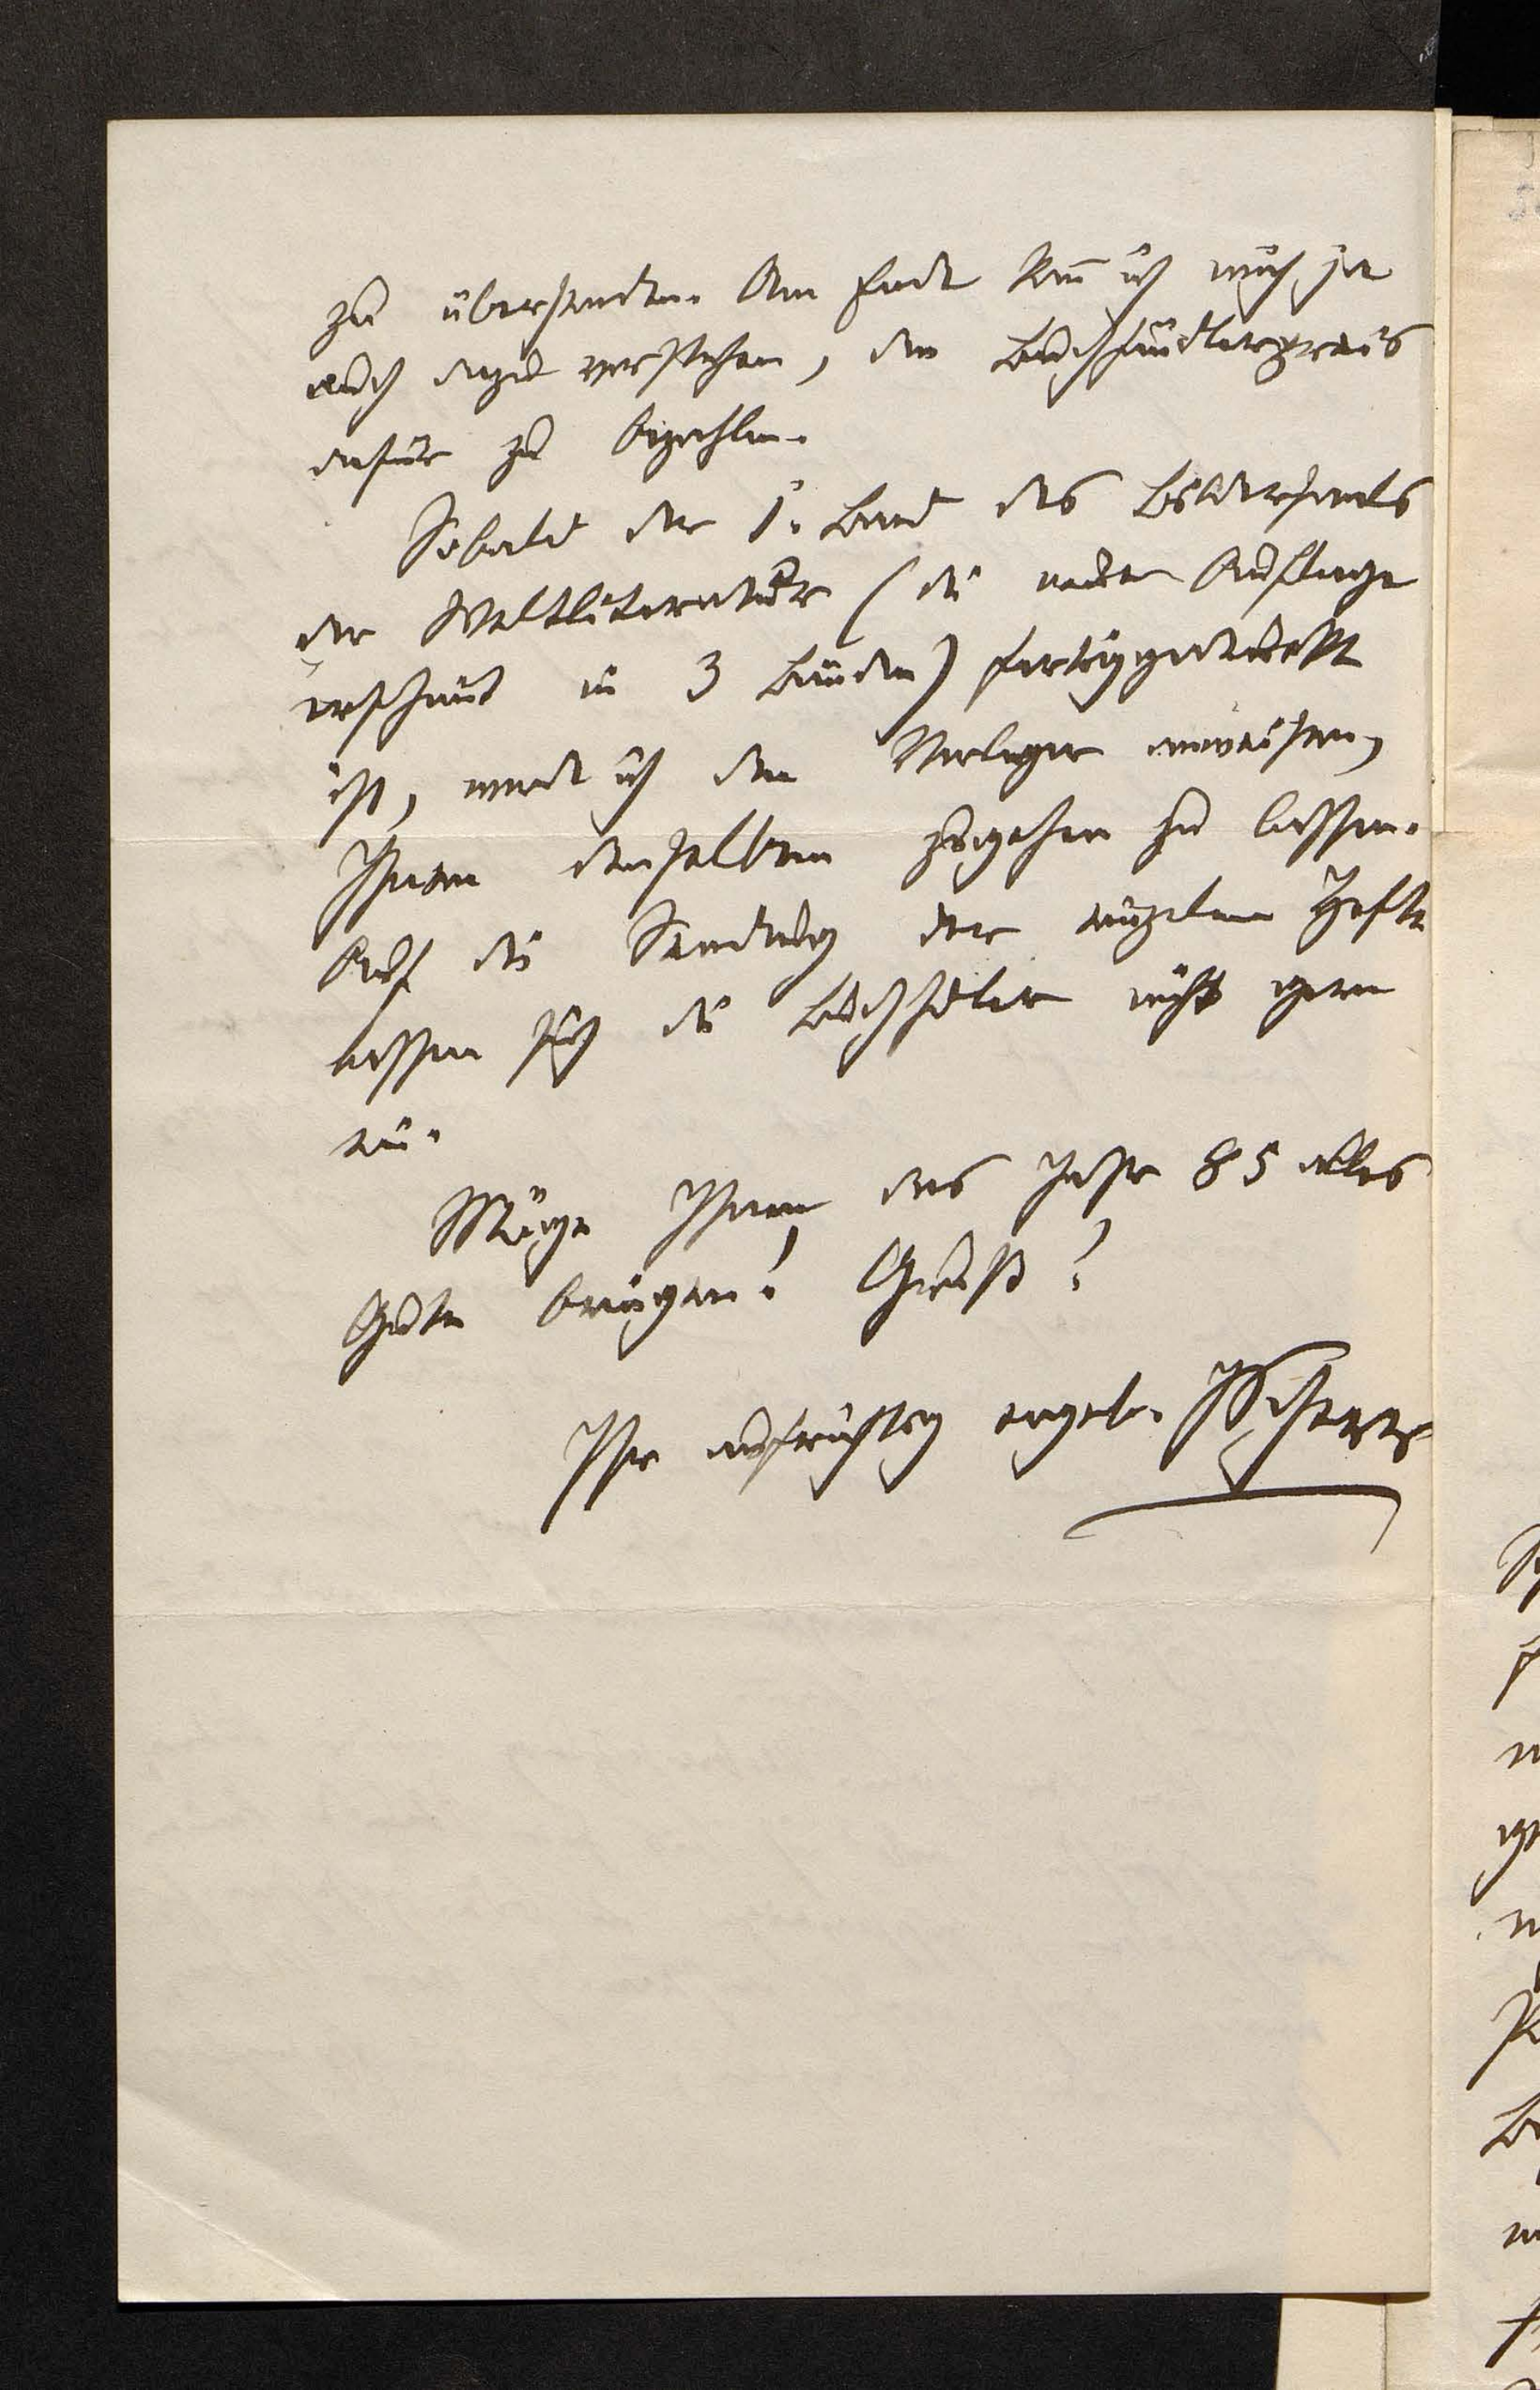 zu übersenden. Am Ende kan̄ ich mich ja
auch dazu verstehen, den Buchhändlerpreis
dafür zu bezahlen.
Sobald der 1. Band des Bildersaals
der Weltliteratur (die neue Auflage
erscheint in 3 Bänden) fertiggedruckt
ist, werde ich den Verleger anweisen,
Ihnen denselben zugehen zu lassen.
Auf die Sendung der einzelnen Hefte
lassen sich die Buchhdler nicht gern
ein.
Möge Ihnen das Jahr 85 alles
Gute bringen! Gruß!
Ihr aufrichtig ergeb. JScherr